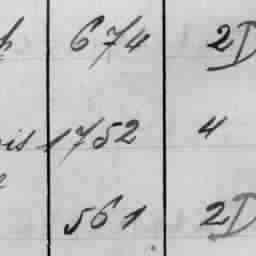 674 2D
is 1752 4
561 2D